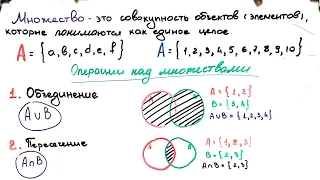 Множество - это совокупность объектов (элементов),
которые понимаются как единое целое
A = {a, b, c, d, e, f} A = {1, 2, 3, 4, 5, 6, 7, 8, 9, 10}
Операции над множествами
1. Объединение
A∪B
A = {1, 2}
B = {3, 4}
A∪B = {1, 2, 3, 4}
2. Пересечение
A∩B
A = {1, 2, 3}
B = {2, 3}
A∩B = {2, 3}